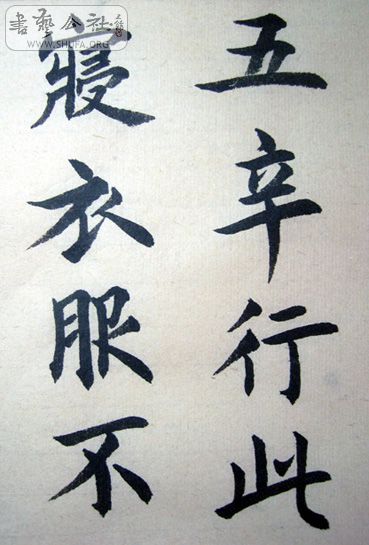 五辛行此
寢衣服不
書藝公社
WWW.SHUFA.ORG